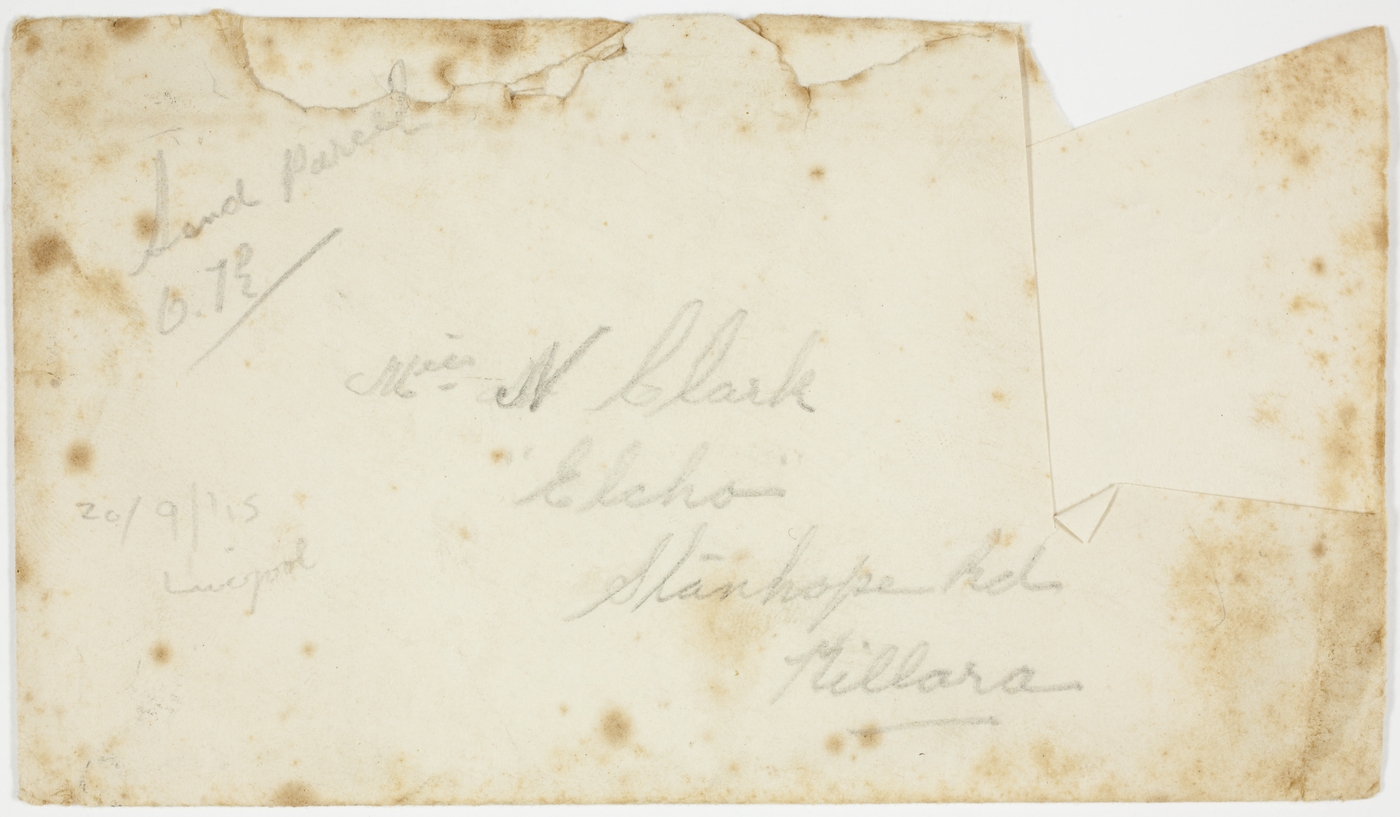 Send Parcel
Miss N Clark
"Elcho"
Stanhope Rd
Killara
20/9/15
Liverpool